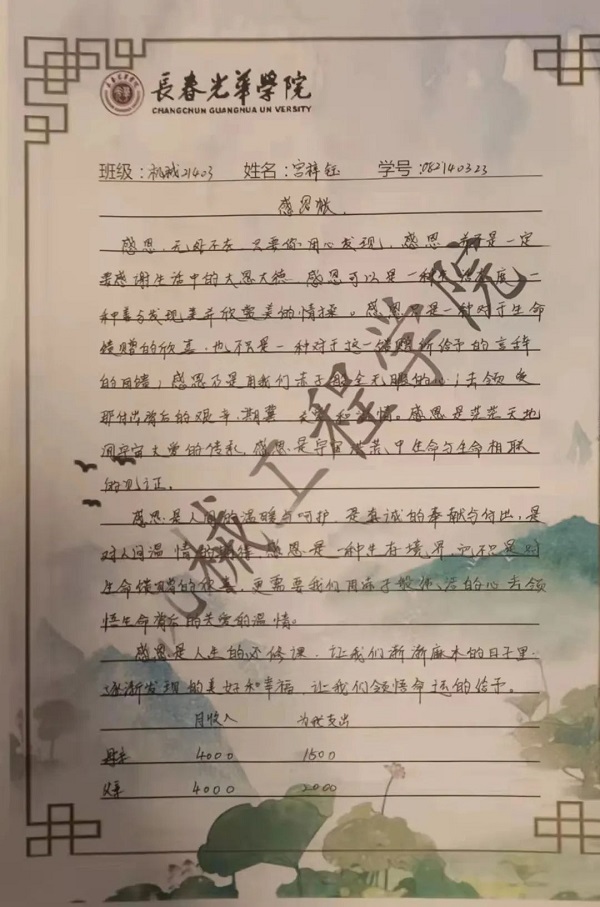 長春光華學院
CHANGCHUN GUANGHUA UN VERSITY
班级:机械21403 姓名:宫梓钰 学号:082140323
感恩献
感恩,无处不在,只要你用心发现,感恩 并不是一定
要感谢生活中的大恩大德,感恩可以是一种生活态度,一
种善与发现美并欣赏美的情操。感恩不只是一种对于生命
馈赠的欣喜,也不只是一种对于这一馈赠所给予的言辞
的回馈;感恩乃是用我们赤子般全无暇的心;去领受
那付出背后的艰辛、期冀、关爱和温情。感恩是茫茫天地
间宇宙大爱的传承,感恩是宇宙洪荒中生命与生命相联
的见证。
感恩是人间的温暖与呵护,是真诚的奉献与付出,是
对人间温情的期待 感恩是一种生存境界,它不只是对
生命馈赠的欣喜,更需要我们用赤子般 的心去领
悟生命背后的关爱的温情。
感恩是人生的必修课,让我们渐渐麻木的日子里
逐渐发现的美好和幸福,让我们领悟命运的给予。
月收入 为我支出
母亲 4000 1500
父亲 4000 2000
机械工程学院